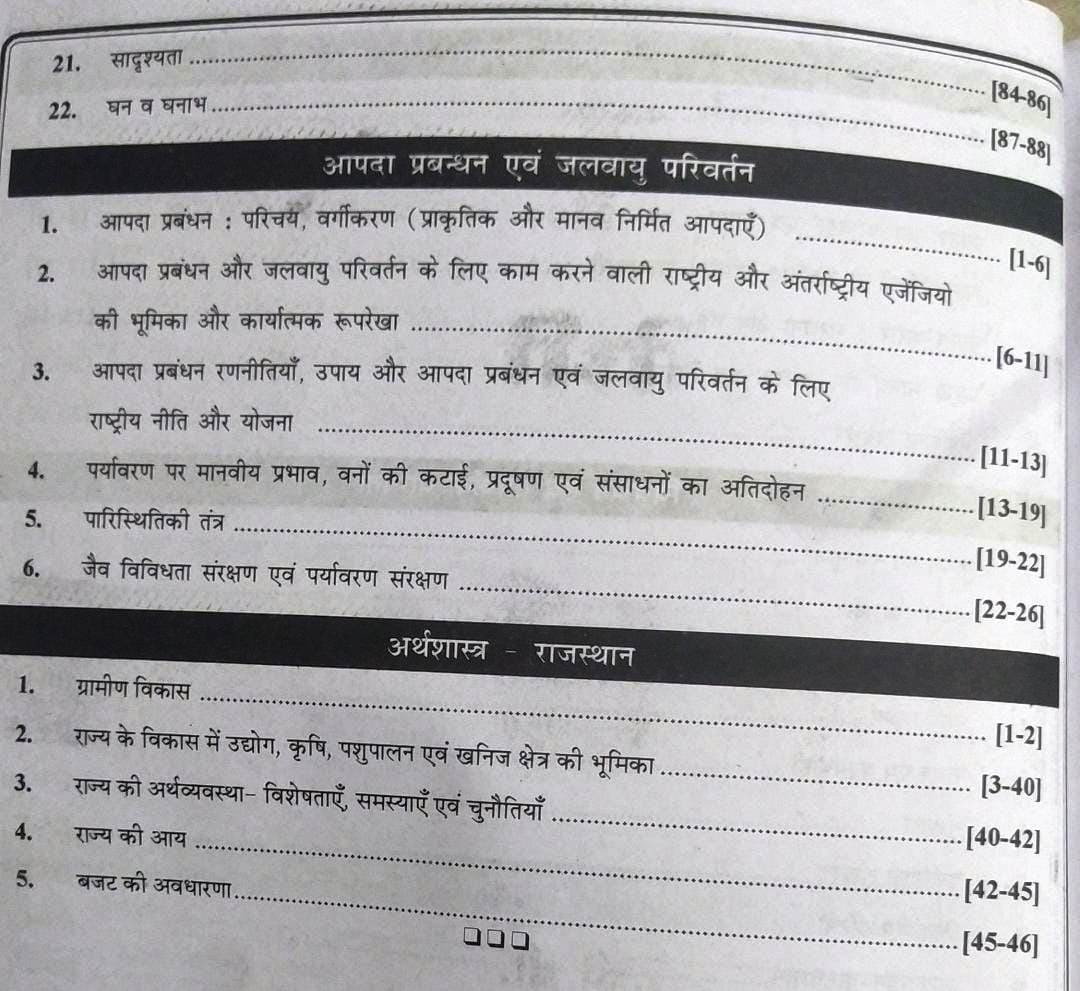 21. सादृश्यता ........ [84-86]
22. घन व घनाभ ........ [87-88]
आपदा प्रबन्धन एवं जलवायु परिवर्तन
1. आपदा प्रबंधन : परिचय, वर्गीकरण (प्राकृतिक और मानव निर्मित आपदाएँ) ........ [1-6]
2. आपदा प्रबंधन और जलवायु परिवर्तन के लिए काम करने वाली राष्ट्रीय और अंतर्राष्ट्रीय एजेंजियो
की भूमिका और कार्यात्मक रूपरेखा ........ [6-11]
3. आपदा प्रबंधन रणनीतियाँ, उपाय और आपदा प्रबंधन एवं जलवायु परिवर्तन के लिए
राष्ट्रीय नीति और योजना ........ [11-13]
4. पर्यावरण पर मानवीय प्रभाव, वनों की कटाई, प्रदूषण एवं संसाधनों का अतिदोहन ........ [13-19]
5. पारिस्थितिकी तंत्र ........ [19-22]
6. जैव विविधता संरक्षण एवं पर्यावरण संरक्षण ........ [22-26]
अर्थशास्त्र - राजस्थान
1. ग्रामीण विकास ........ [1-2]
2. राज्य के विकास में उद्योग, कृषि, पशुपालन एवं खनिज क्षेत्र की भूमिका ........ [3-40]
3. राज्य की अर्थव्यवस्था- विशेषताएँ, समस्याएँ एवं चुनौतियाँ ........ [40-42]
4. राज्य की आय ........ [42-45]
5. बजट की अवधारणा ........ [45-46]